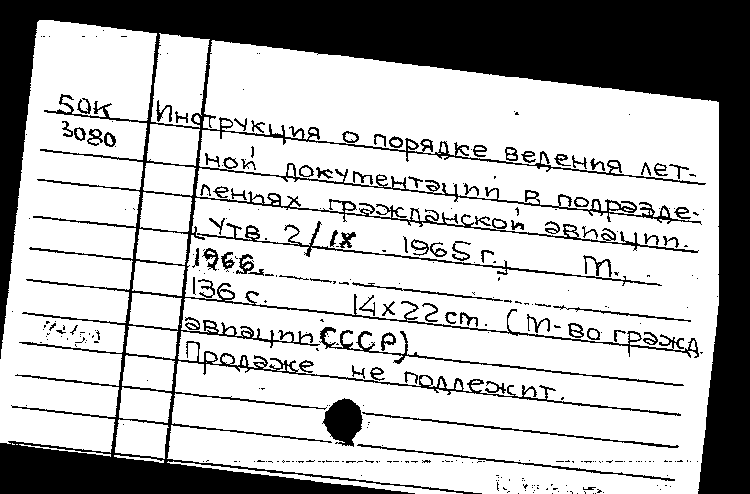 50К Инструкция о порядке ведения лет-
3080
ной документации в подразде-
лениях гражданской авиации.
Утв. 2/IX. 1965 г., М.,
1966.
136 с. 14х22 cm. (М-во гражд.
авиации СССР).
Продаже не подлежит.